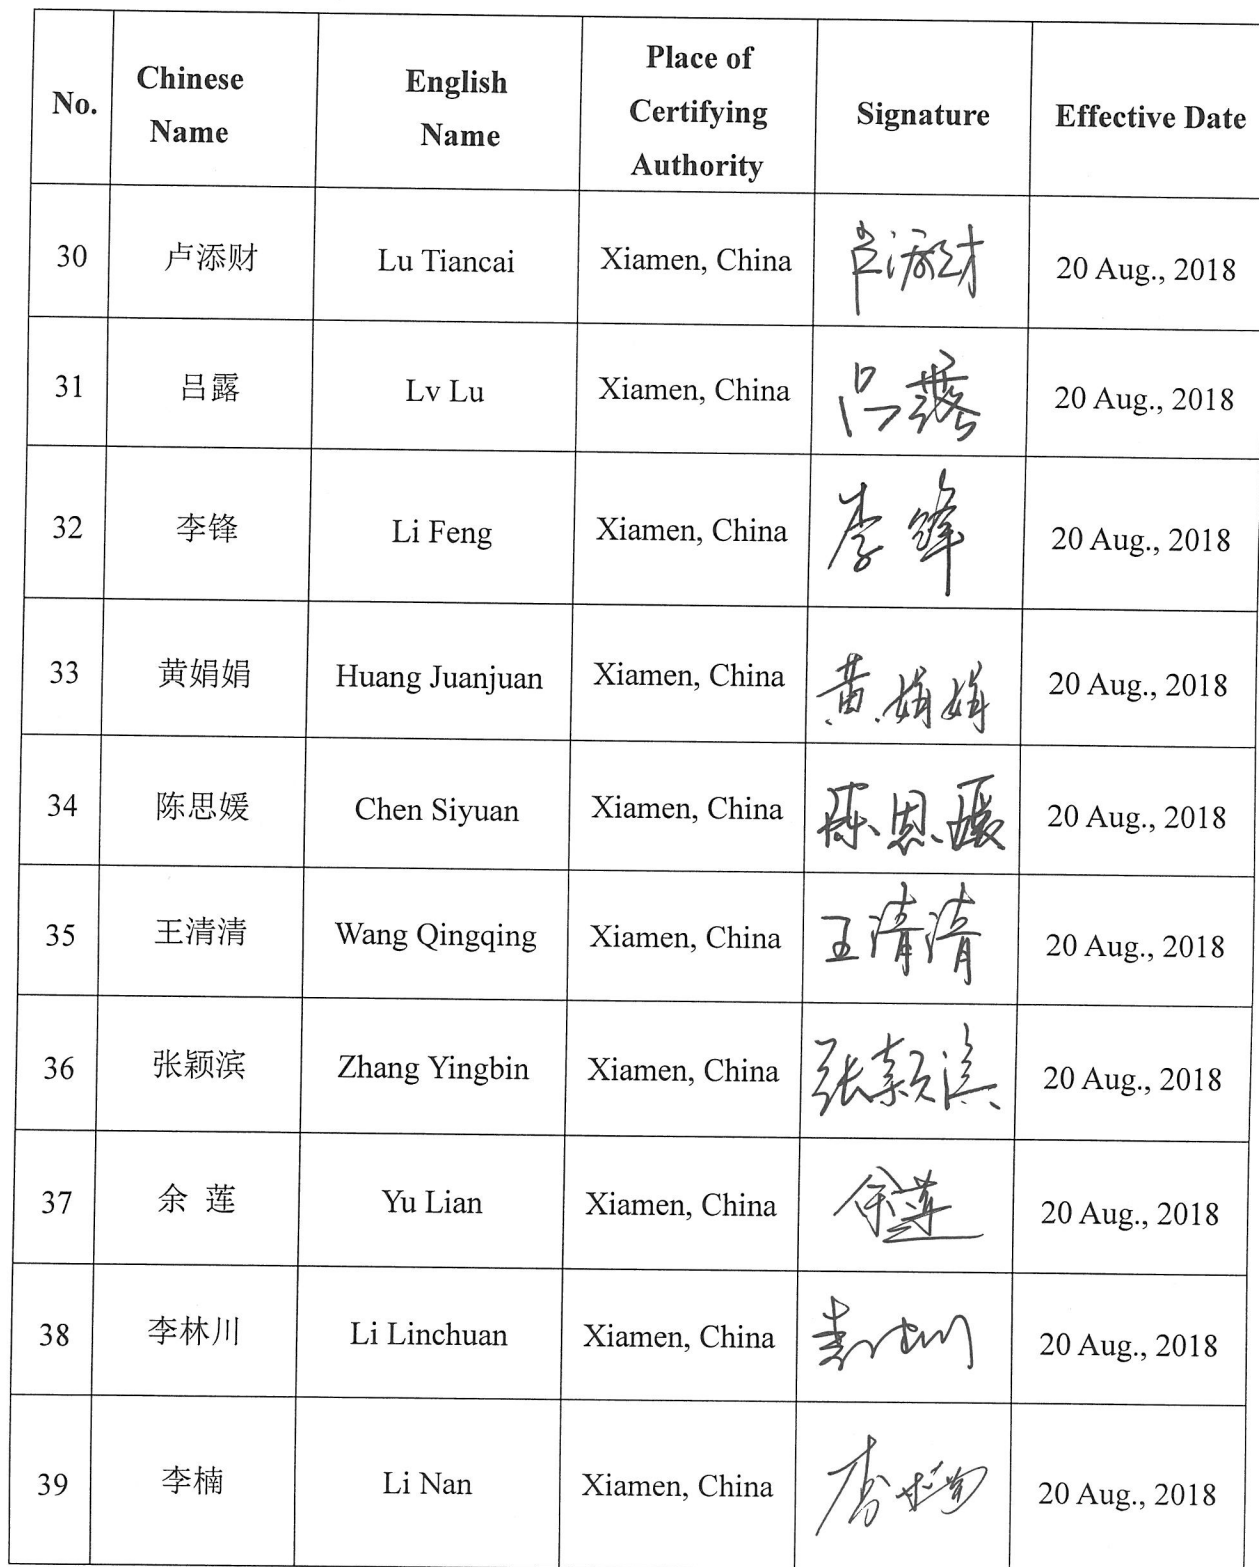 No. Chinese Name English Name Place of Certifying Authority Signature Effective Date
30 卢添财 Lu Tiancai Xiamen, China 卢添财 20 Aug., 2018
31 吕露 Lv Lu Xiamen, China 吕露 20 Aug., 2018
32 李锋 Li Feng Xiamen, China 李锋 20 Aug., 2018
33 黄娟娟 Huang Juanjuan Xiamen, China 黄娟娟 20 Aug., 2018
34 陈思媛 Chen Siyuan Xiamen, China 陈思媛 20 Aug., 2018
35 王清清 Wang Qingqing Xiamen, China 王清清 20 Aug., 2018
36 张颖滨 Zhang Yingbin Xiamen, China 张颖滨 20 Aug., 2018
37 余 莲 Yu Lian Xiamen, China 余莲 20 Aug., 2018
38 李林川 Li Linchuan Xiamen, China 20 Aug., 2018
39 李楠 Li Nan Xiamen, China 李楠 20 Aug., 2018